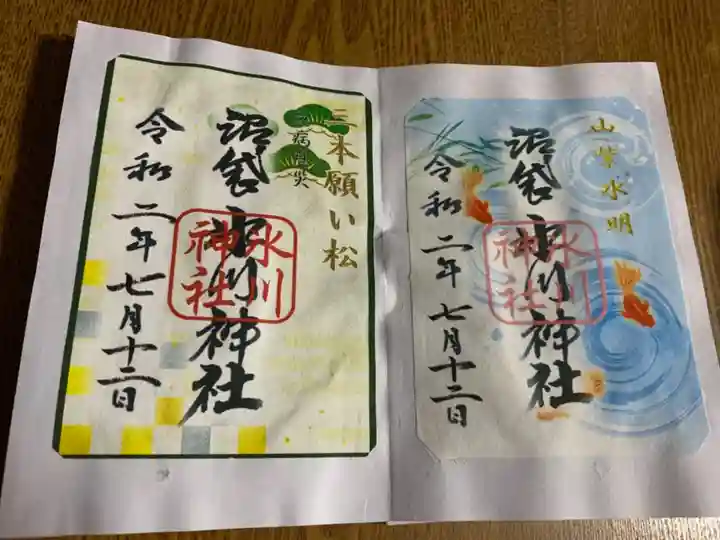 三本願い松
沼袋氷川神社
氷川
神社
令和二年七月十二日
山紫水明
沼袋氷川神社
氷川
神社
令和二年七月十二日